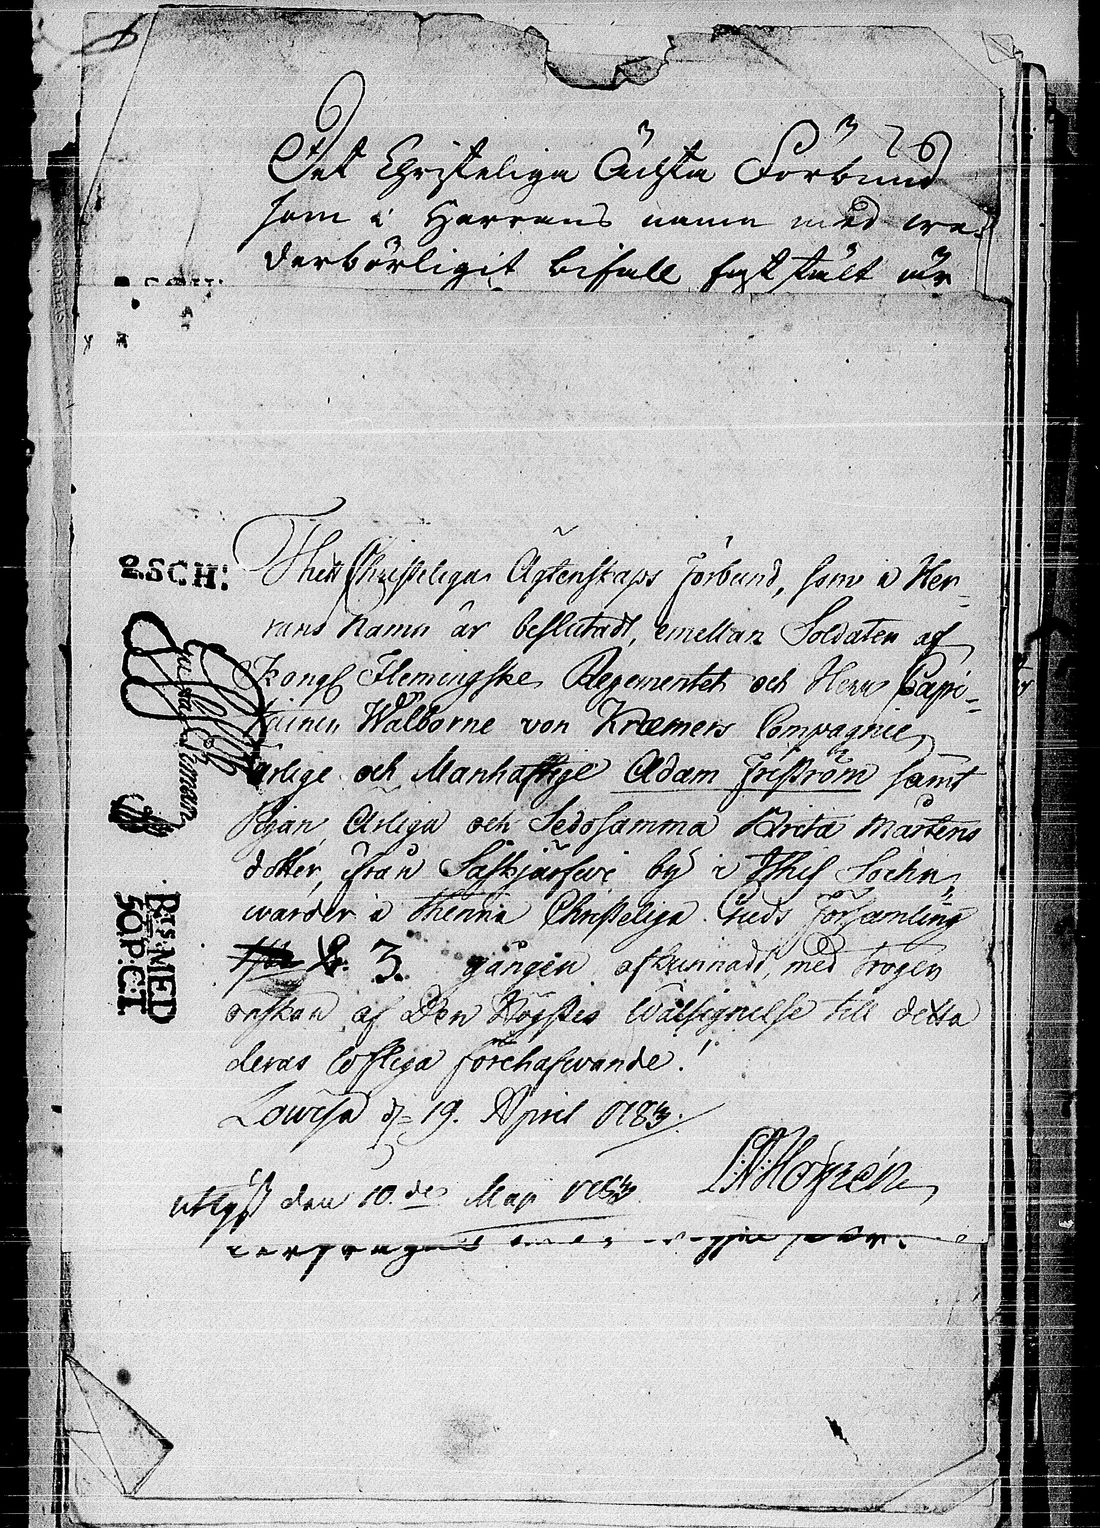 26
Det Christeliga Ächta Förbund
som i Herrans namn med we-
derbörligit bifall fast stält är
2.SCH:
Thet Christeliga Ägtenskaps förbund, som i Her-
rans Namn är beslutadt, emellan Soldaten af
Kongl Flemingske Regementet och Herr Capi-
tainen Wälborne von Kræmers Compagnie,
Ärlige och Manhaftige Adam Friström samt
Pigan, Ärliga och Sedosamma Brita Mårtens
dotter, ifrån Säskjärfwi by i Sochn,
warder i thenna Christeliga Guds Församling
3. gången afkunnadt, med trogen
önskan af Den Högstes Wälsignelse till detta
deras Lofliga förehafwande!
Lowisa d 19. April 1783.
utlyst den 10. de Maji 1783
Bts MED
5QP:CT